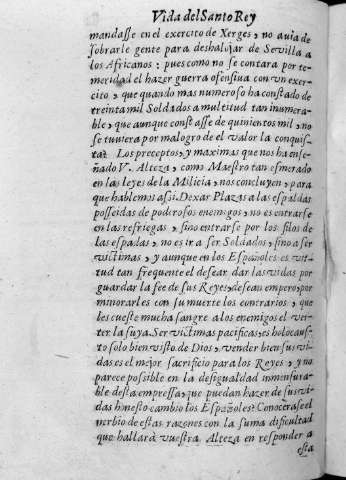 Vida del Santo Rey
mandasse en el exercito de Xerges, no auia de
sobrarle gente para deshalojar de Sevilla a
los Africanos: pues como no se contara por te-
meridad el hazer guerra ofensiua con vn exer-
cito, que quando mas numeroso ha constado de
treinta mil Soldados a multitud tan inumera-
ble, que aunque constasse de quinientos mil, no
se tuviera por malogro de el valor la conquis-
ta? Los preceptos, y maximas que nos ha ense-
ñado V. Alteza, como Maestro tan esmerado
en las leyes de la Milicia, nos concluyen, para
que hablemos assi. Dexar Plazas a las espaldas
posseidas de poderosos enemigos, no es entrarse
en las refriegas, sino entrarse por los filos de
las espadas, no es ir a ser Soldados, sino a ser
victimas, y aunque en los Españoles es vir-
tud tan frequente el desear dar las vidas por
guardar la fee de sus Reyes, desean empero, por
minorarles con su muerte los contrarios, que
les cueste mucha sangre a los enemigos el ver-
ter la suya. Ser victimas pacificas, es holocaus-
to solo bien visto de Dios, vender bien sus vi-
das es el mejor sacrificio para los Reyes, y no
parece possible en la desigualdad inmensura-
ble desta empressa, que puedan hazer de sus vi-
das honesto cambio los Españoles? Conocerase el
nerbio de estas razones con la suma dificultad
que hallarà vuestra Alteza en responder a
esta